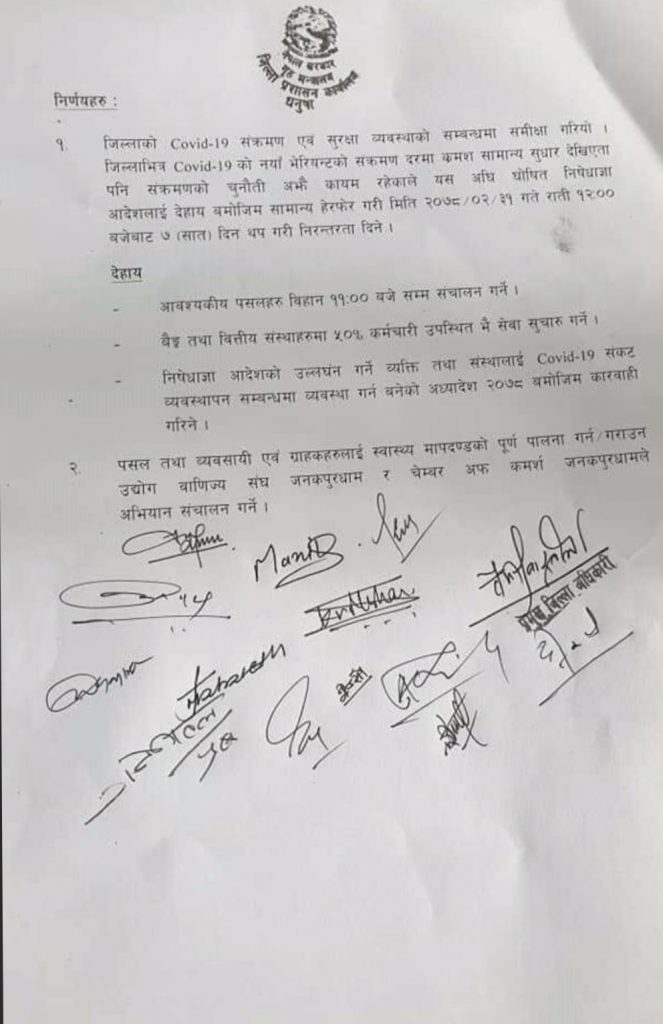 नेपाल सरकार
गृह मन्त्रालय
जिल्ला प्रशासन कार्यालय
धनुषा
निर्णयहरु :
१. जिल्लाको Covid-19 संक्रमण एवं सुरक्षा व्यवस्थाको सम्बन्धमा समीक्षा गरियो ।
जिल्लाभित्र Covid-19 को नयाँ भेरियन्टको संक्रमण दरमा कमश सामान्य सुधार देखिएता
पनि संक्रमणको चुनौती अझै कायम रहेकाले यस अघि घोषित निषेधाज्ञा
आदेशलाई देहाय बमोजिम सामान्य हेरफेर गरी मिति २०७८/०२/३१ गते राती १२:००
बजेबाट ७ (सात) दिन थप गरी निरन्तरता दिने ।
देहाय
- आवश्यकीय पसलहरु विहान ११:०० बजे सम्म संचालन गर्ने ।
- बैङ्क तथा वित्तीय संस्थाहरुमा ५०% कर्मचारी उपस्थित भै सेवा सुचारु गर्ने ।
- निषेधाज्ञा आदेशको उल्लघंन गर्ने व्यक्ति तथा संस्थालाई Covid-19 संकट
व्यवस्थापन सम्बन्धमा व्यवस्था गर्न बनेको अध्यादेश २०७८ बमोजिम कारवाही
गरिने ।
२. पसल तथा व्यवसायी एवं ग्राहकहरुलाई स्वास्थ्य मापदण्डको पूर्ण पालना गर्न/गराउन
उद्योग वाणिज्य संघ जनकपुरधाम र चेम्बर अफ कमर्श जनकपुरधामले
अभियान संचालन गर्ने ।
प्रमुख जिल्ला अधिकारी